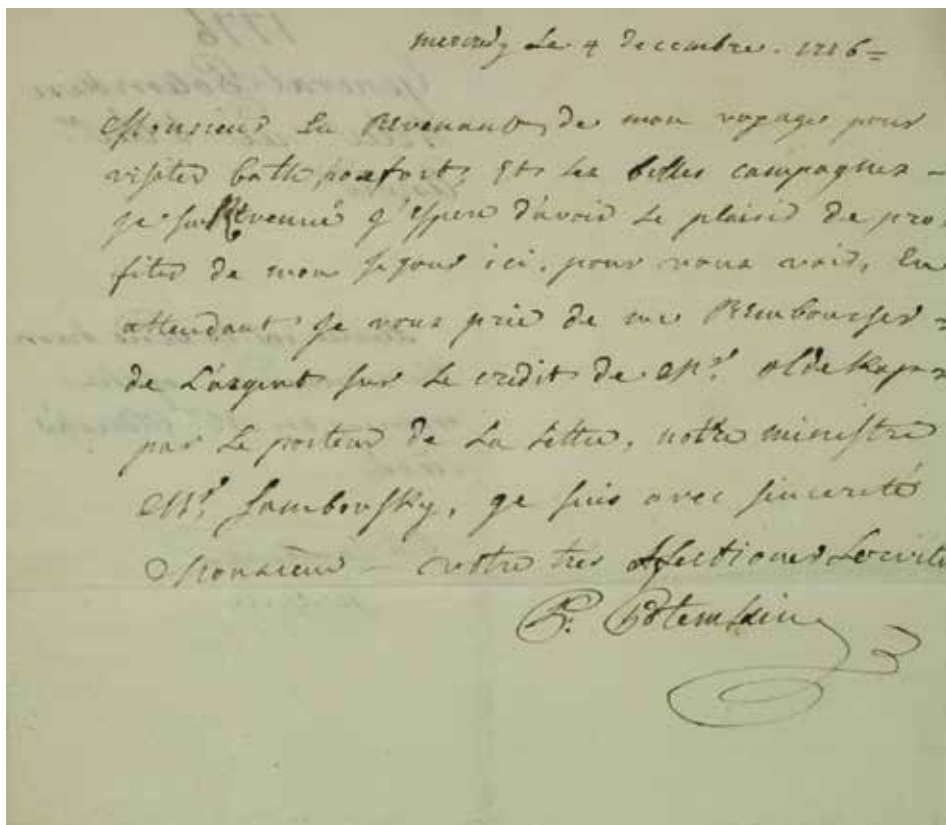 mercredy Le 4 Decembre. 1776=
Monsieur En Revenant de mon voyage pour
visiter bath, Et les belles campagnes -
je Revenué j'esspere d'avoir Le plaisir de pro-
fiter de mon sejour ici, pour vous voir, En
attendant je vous prie de me Rembourser=
de L'argent sur Le credit de Mr.
par Le porteur de La Lettre, notre ministre
Mr. Sambovsky, je suis avec sincerité
Monsieur - votre tres affectioner
P. Potemkin